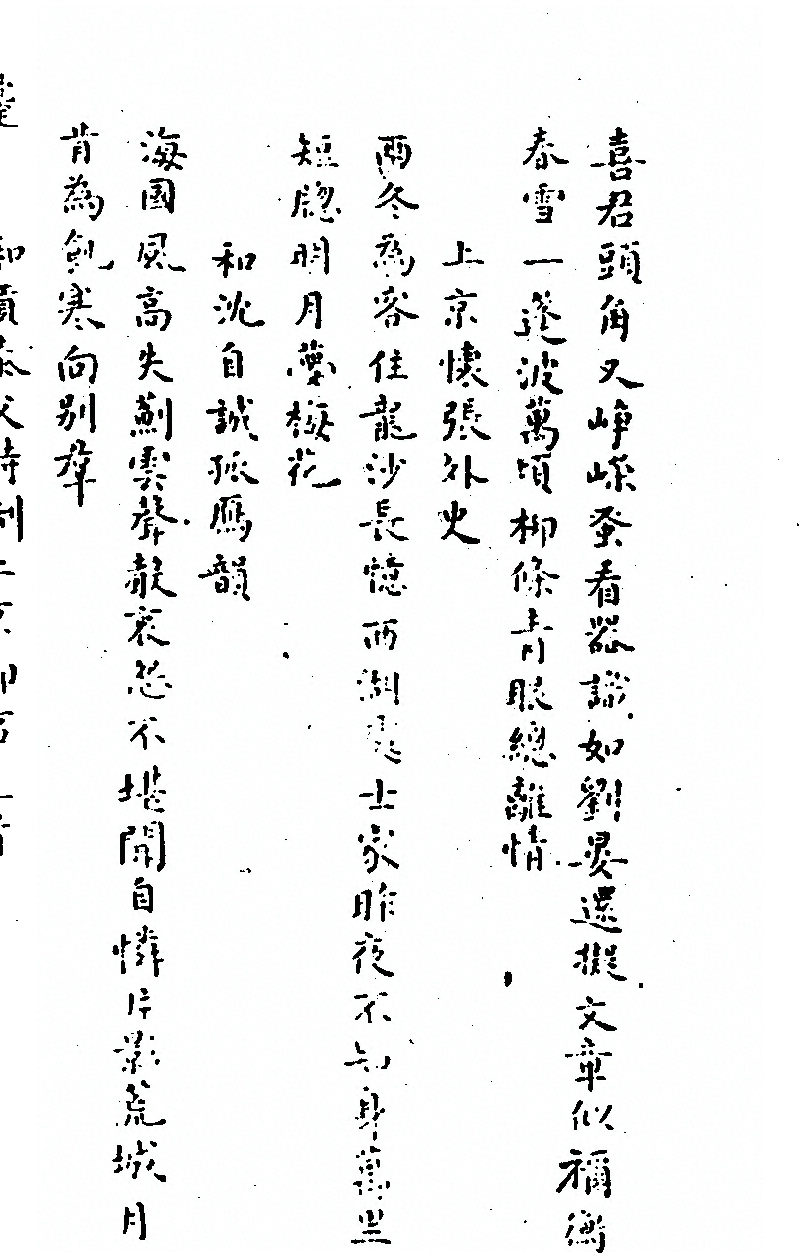 喜君頭角又崢嶸蚤看器識如劉晏還擬文章似禰衡
春雪一蓬波萬頃柳條青眼總離情
上京懷張外史
兩冬為客住龍沙長憶西湖處士家昨夜不知身萬里
短牕明月夢梅花
和沈自誠孤鴈韻
海國風高失薊雲聲聲哀怨不堪聞自憐片影荒城月
肯為飢寒向別羣